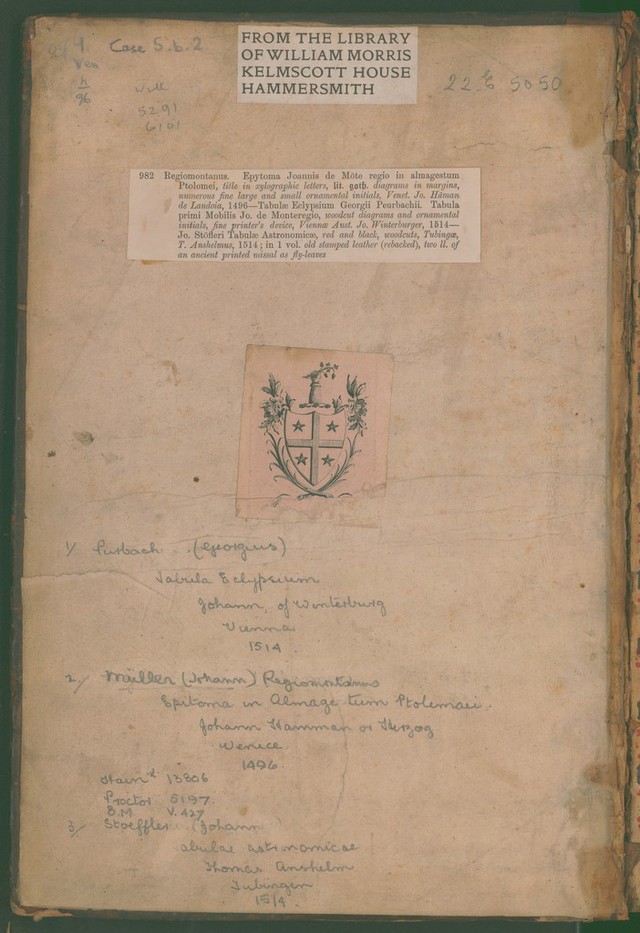 Case 5.b.2
Ven
96
5291
6101
22.E 5050
FROM THE LIBRARY
OF WILLIAM MORRIS
KELMSCOTT HOUSE
HAMMERSMITH
982 Regiomontanus. Epytoma Joannis de Mōte regio in almagestum
Ptolomei, title in xylographic letters, lit. goth. diagrams in margins,
numerous fine large and small ornamental initials, Venet. Jo. Hāman
de Landoia, 1496—Tabulæ Eclypsium Georgii Peurbachii. Tabula
primi Mobilis Jo. de Monteregio, woodcut diagrams and ornamental
initials, fine printer's device, Viennæ Aust. Jo. Winterburger, 1514—
Jo. Stöfleri Tabulæ Astronomicæ, red and black, woodcuts, Tubingæ,
T. Anshelmus, 1514; in 1 vol. old stamped leather (rebacked), two ll. of
an ancient printed missal as fly-leaves
1/ Purbach (Georgius)
Tabula Eclypsium
Johann, of Winterburg
Vienna
1514
2/ Müller (Johann) Regiomontanus
Epitoma in Almagestum Ptolemaei.
Johann Hamman or Herzog
Venice
1496
Hain* 13806
Proctor 5197
B.M V.427
3/ Stoeffler (Johann
abulae astronomicae
Thomas Anshelm
Tubingen
1514